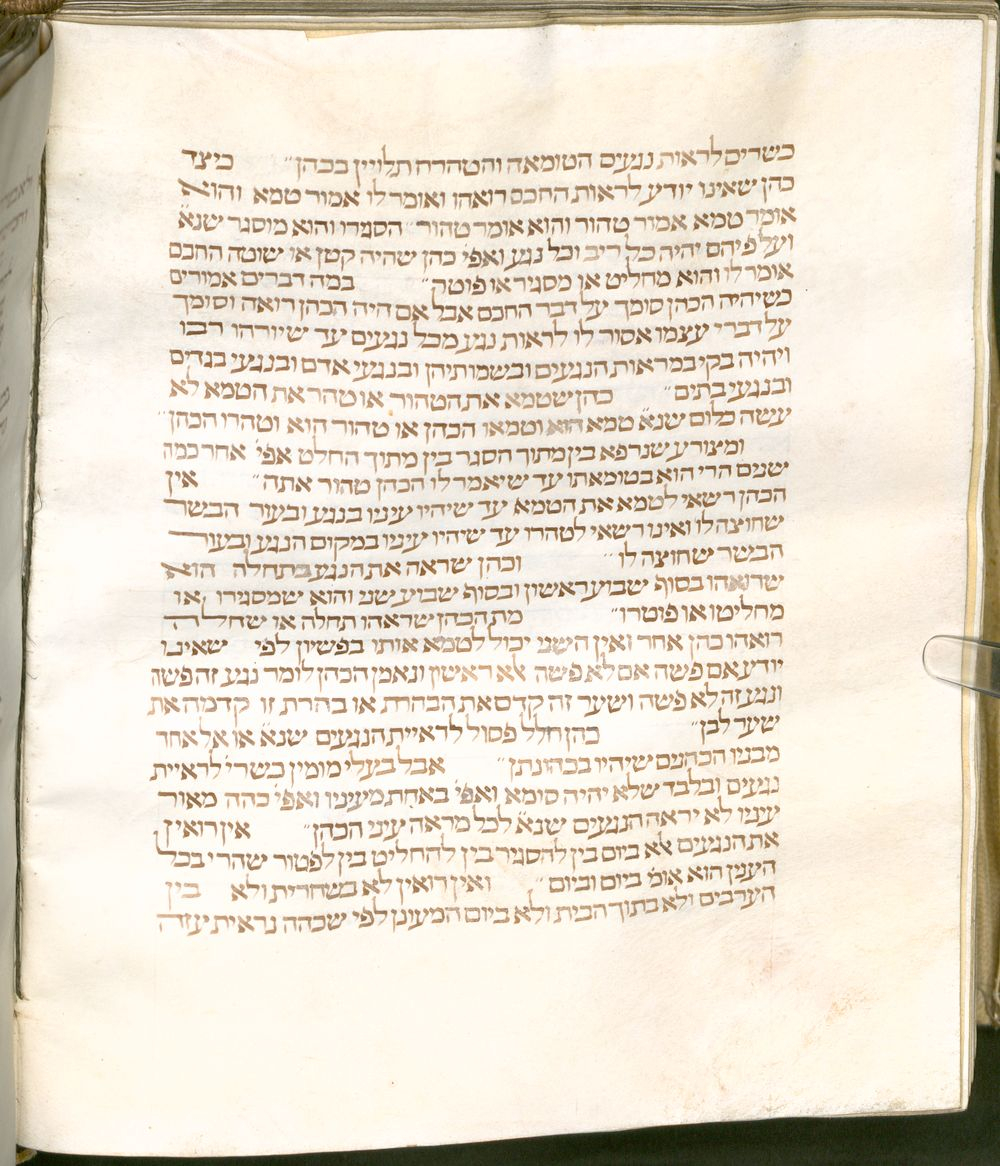 כשרים לראות נגעים הטומאה והטהרה תלויין בכהן״ כיצד
כהן שאינו יודע לראות החכם רואהו ואומר לו אמור טמא והוא
אומר טמא אמור טהור והוא אומר טהור״ הסגירו והוא מוסגר שנא׳
ועל פיהם יהיה כל ריב וכל נגע ואפי׳ כהן שהיה קטן או שוטה החכם
אומר לו והוא מחליט או מסגיר או פוטק״ במה דברים אמורים
כשיהיה הכהן סומך על דבר החכם אבל אם היה הכהן רואה וסומך
על דברי עצמו אסור לו לראות נגע מכל נגעים עד שיורהו רבו
ויהיה בקי במראות הנגעים ובשמותיהן ובנגעי אדם ובנגעי בגדים
ובנגעי בתים״ כהן שטמא את הטהור או טהר את הטמא לא
עשה כלום שנא׳ טמא הוא וטמאו הכהן או טהור הוא וטהרו הכהן״
ומצורע שנרפא בין מתוך הסגר בין מתוך החלט אפי׳ אחר כמה
שנים הרי הוא בטומאתו עד שיאמר לו הכהן טהור אתה״ אין
הכהן רשאי לטמא את הטמא עד שיהיו עיניו בנגע ובעור הבשר
שחוצה לו ואינו רשאי לטהרו עד שיהיו עיניו במקום הנגע ובעור
הבשר שחוצה לו״ וכהן שראה את הנגע בתחלה הוא
שרואהו בסוף שבוע ראשון ובסוף שבוע שני והוא שמסגירו או
מחליטו או פוטרו״ מת הכהן שראהו תחלה או שחלה
רואהו כהן אחר ואין השני יכול לטמא אותו בפשיון לפי שאינו
יודע אם פשה אם לא פשה אלא ראשון ונאמן הכהן לומר נגע זה פשה
ונגע זה לא פשה ושער זה קדם את הבהרת או בהרת זו קדמה את
שער לבן״ כהן חלל פסול לראיית הנגעים שנא׳ או אל אחד
מבניו הכהנים שיהיו בכהונתן״ אבל בעלי מומין כשרי׳ לראיית
נגעים ובלבד שלא יהיה סומא ואפי׳ באחת מעיניו ואפי׳ כהה מאור
עיניו לא יראה הנגעים שנא׳ לכל מראה עיני הכהן״ אין רואין
את הנגעים אלא ביום בין להסגיר בין להחליט בין לפטור שהרי בכל
הענין הוא אומ׳ ביום וביום״ ואין רואין לא בשחרית ולא בין
הערבים ולא בתוך הבית ולא ביום המעונן לפי שכהה נראית עזה